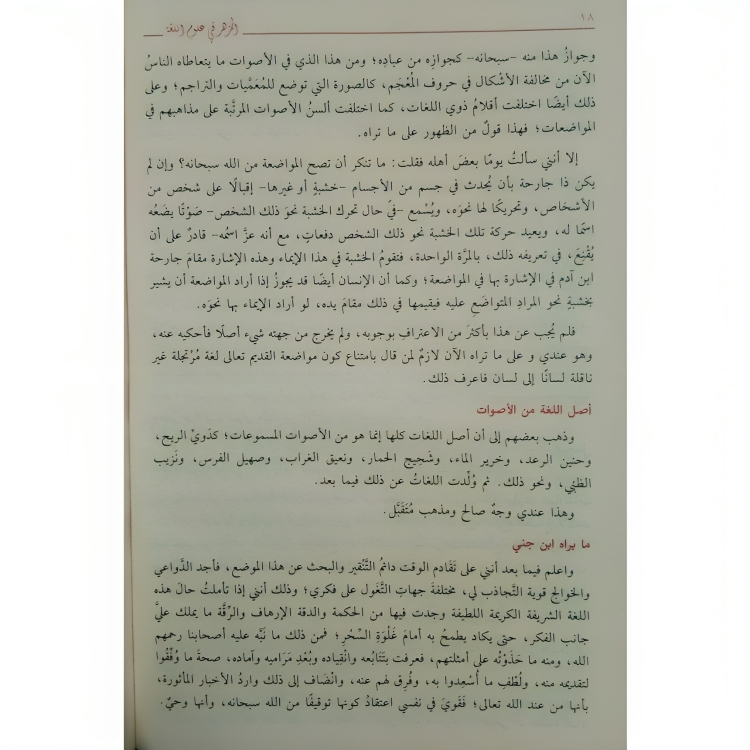 ١٨
المزهر في علوم اللغة
وجوازُ هذا منه –سبحانه– كجوازِه من عبادِه؛ ومن هذا الذي في الأصوات ما يتعاطاه الناسُ
الآن من مخالفة الأشْكال في حروف المُعْجَم، كالصورة التي توضع للمُعَمَّيات والتراجم؛ وعلى
ذلك أيضًا اختلفت أقلامُ ذوي اللغات، كما اختلفت ألسنُ الأصوات المرتَّبة على مذاهبهم في
المواضعات؛ فهذا قولٌ من الظهور على ما تراه.
إلا أنني سألتُ يومًا بعضَ أهله فقلت: ما تنكر أن تصح المواضعة من الله سبحانه؟ وإن لم
يكن ذا جارحة بأن يُحدث في جسم من الأجسام –خشبةٍ أو غيرها– إقبالًا على شخص من
الأشخاص، وتحريكًا لها نحوَه، ويُسْمع –في حال تحرك الخشبة نحوَ ذلك الشخص– صَوْتًا يضَعُه
اسمًا له، ويعيد حركة تلك الخشبة نحو ذلك الشخص دفعاتٍ، مع أنه عزَّ اسْمُه– قادرٌ على أن
يُقْنِعَ، في تعريفه ذلك، بالمرَّة الواحدة، فتقومُ الخشبة في هذا الإيماء وهذه الإشارة مقامَ جارحة
ابن آدم في الإشارة بها في المواضعة؛ وكما أن الإنسان أيضًا قد يجوزُ إذا أراد المواضعة أن يشير
بخشبةٍ نحو المرادِ المتواضَعِ عليه فيقيمها في ذلك مقامَ يده، لو أراد الإيماء بها نحوَه.
فلم يُجب عن هذا بأكثرَ من الاعترافِ بوجوبه، ولم يخرج من جهته شيء أصلًا فأحكيه عنه،
وهو عندي و على ما تراه الآن لازمٌ لمن قال بامتناع كون مواضعة القديم تعالى لغة مُرْتجلة غير
ناقلة لسانًا إلى لسان فاعرف ذلك.
أصل اللغة من الأصوات
وذهب بعضهم إلى أن أصل اللغات كلها إنما هو من الأصوات المسموعات؛ كدَويِّ الريح،
وحنين الرعد، وخرير الماء، وشَحِيج الحمار، ونعيق الغراب، وصهيل الفرس، ونَزيب
الظبْي، ونحو ذلك. ثم وُلِّدت اللغاتُ عن ذلك فيما بعد.
وهذا عندي وجهٌ صالح ومذهب مُتَقَبَّل.
ما يراه ابن جني
واعلم فيما بعد أنني على تَقَادم الوقت دائمُ التَّنْقير والبحث عن هذا الموضع، فأجد الدَّواعي
والخوالج قوية التَّجاذب لي، مختلفةَ جهاتِ التَّغَول على فكري؛ وذلك أنني إذا تأملتُ حالَ هذه
اللغة الشريفة الكريمة اللطيفة وجدت فيها من الحكمة والدقة الإرهاف والرِّقَّة ما يملك عليَّ
جانب الفكر، حتى يكاد يطمحُ به أمامَ غَلْوَةِ السِّحْرِ؛ فمن ذلك ما نَبَّه عليه أصحابنا رحمهم
الله، ومنه ما حَذَوْتُه على أمثلتهم، فعرفت بتَتَابُعه وانْقِياده وبُعْدِ مَرَاميه وآماده، صحةَ ما وُفِّقُوا
لتقديمه منه، ولُطْفِ ما أُسْعِدوا به، وفُرِق لهم عنه، وانْضَاف إلى ذلك واردُ الأخبار المأثورة،
بأنها من عند الله تعالى؛ فَقَويَ في نفسي اعتقادُ كونها توقيفًا من الله سبحانه، وأنها وحيٌ.